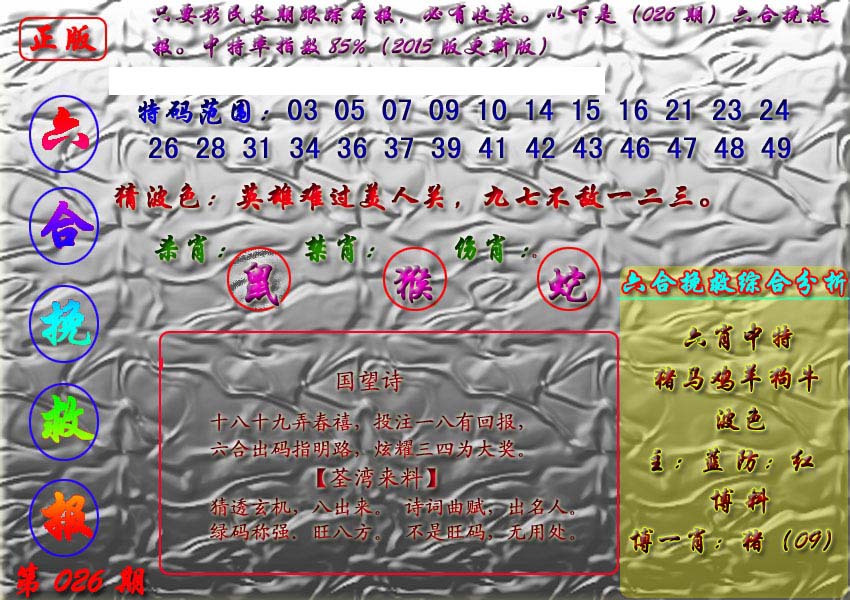 正版
只要彩民长期跟踪本报，必有收获。以下是（026期）六合挽救
报。中特率指数85%（2015版更新版）
特码范围：03 05 07 09 10 14 15 16 21 23 24
26 28 31 34 36 37 39 41 42 43 46 47 48 49
猜波色：英雄难过美人关，九七不敌一二三。
杀肖：鼠 禁肖：猴 伤肖：蛇
六合挽救报
第026期
国望诗
十八十九弄春禧，投注一八有回报，
六合出码指明路，炫耀三四为大奖。
【荃湾来料】
猜透玄机，八出来。 诗词曲赋，出名人。
绿码称强．旺八方。 不是旺码，无用处。
六合挽救综合分析
六肖中特
猪马鸡羊狗牛
波色
主：蓝防：红
博料
博一肖：猪（09）